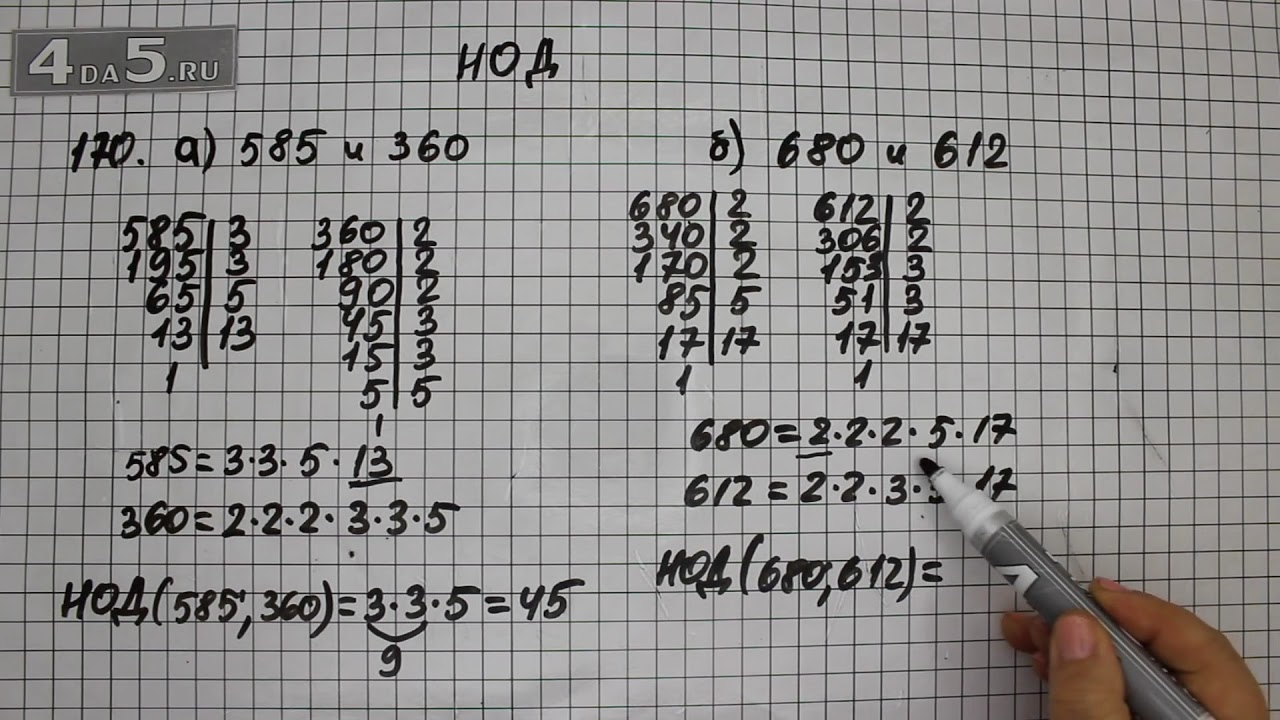 4DA5.RU
НОД
170. а) 585 и 360
585 | 3
195 | 3
65 | 5
13 | 13
1
360 | 2
180 | 2
90 | 2
45 | 3
15 | 3
5 | 5
1
585 = 3·3·5·13
360 = 2·2·2·3·3·5
НОД(585, 360) = 3·3·5 = 45
9
б) 680 и 612
680 | 2
340 | 2
170 | 2
85 | 5
17 | 17
1
612 | 2
306 | 2
153 | 3
51 | 3
17 | 17
1
680 = 2·2·2·5·17
612 = 2·2·3· ·17
НОД(680, 612) =